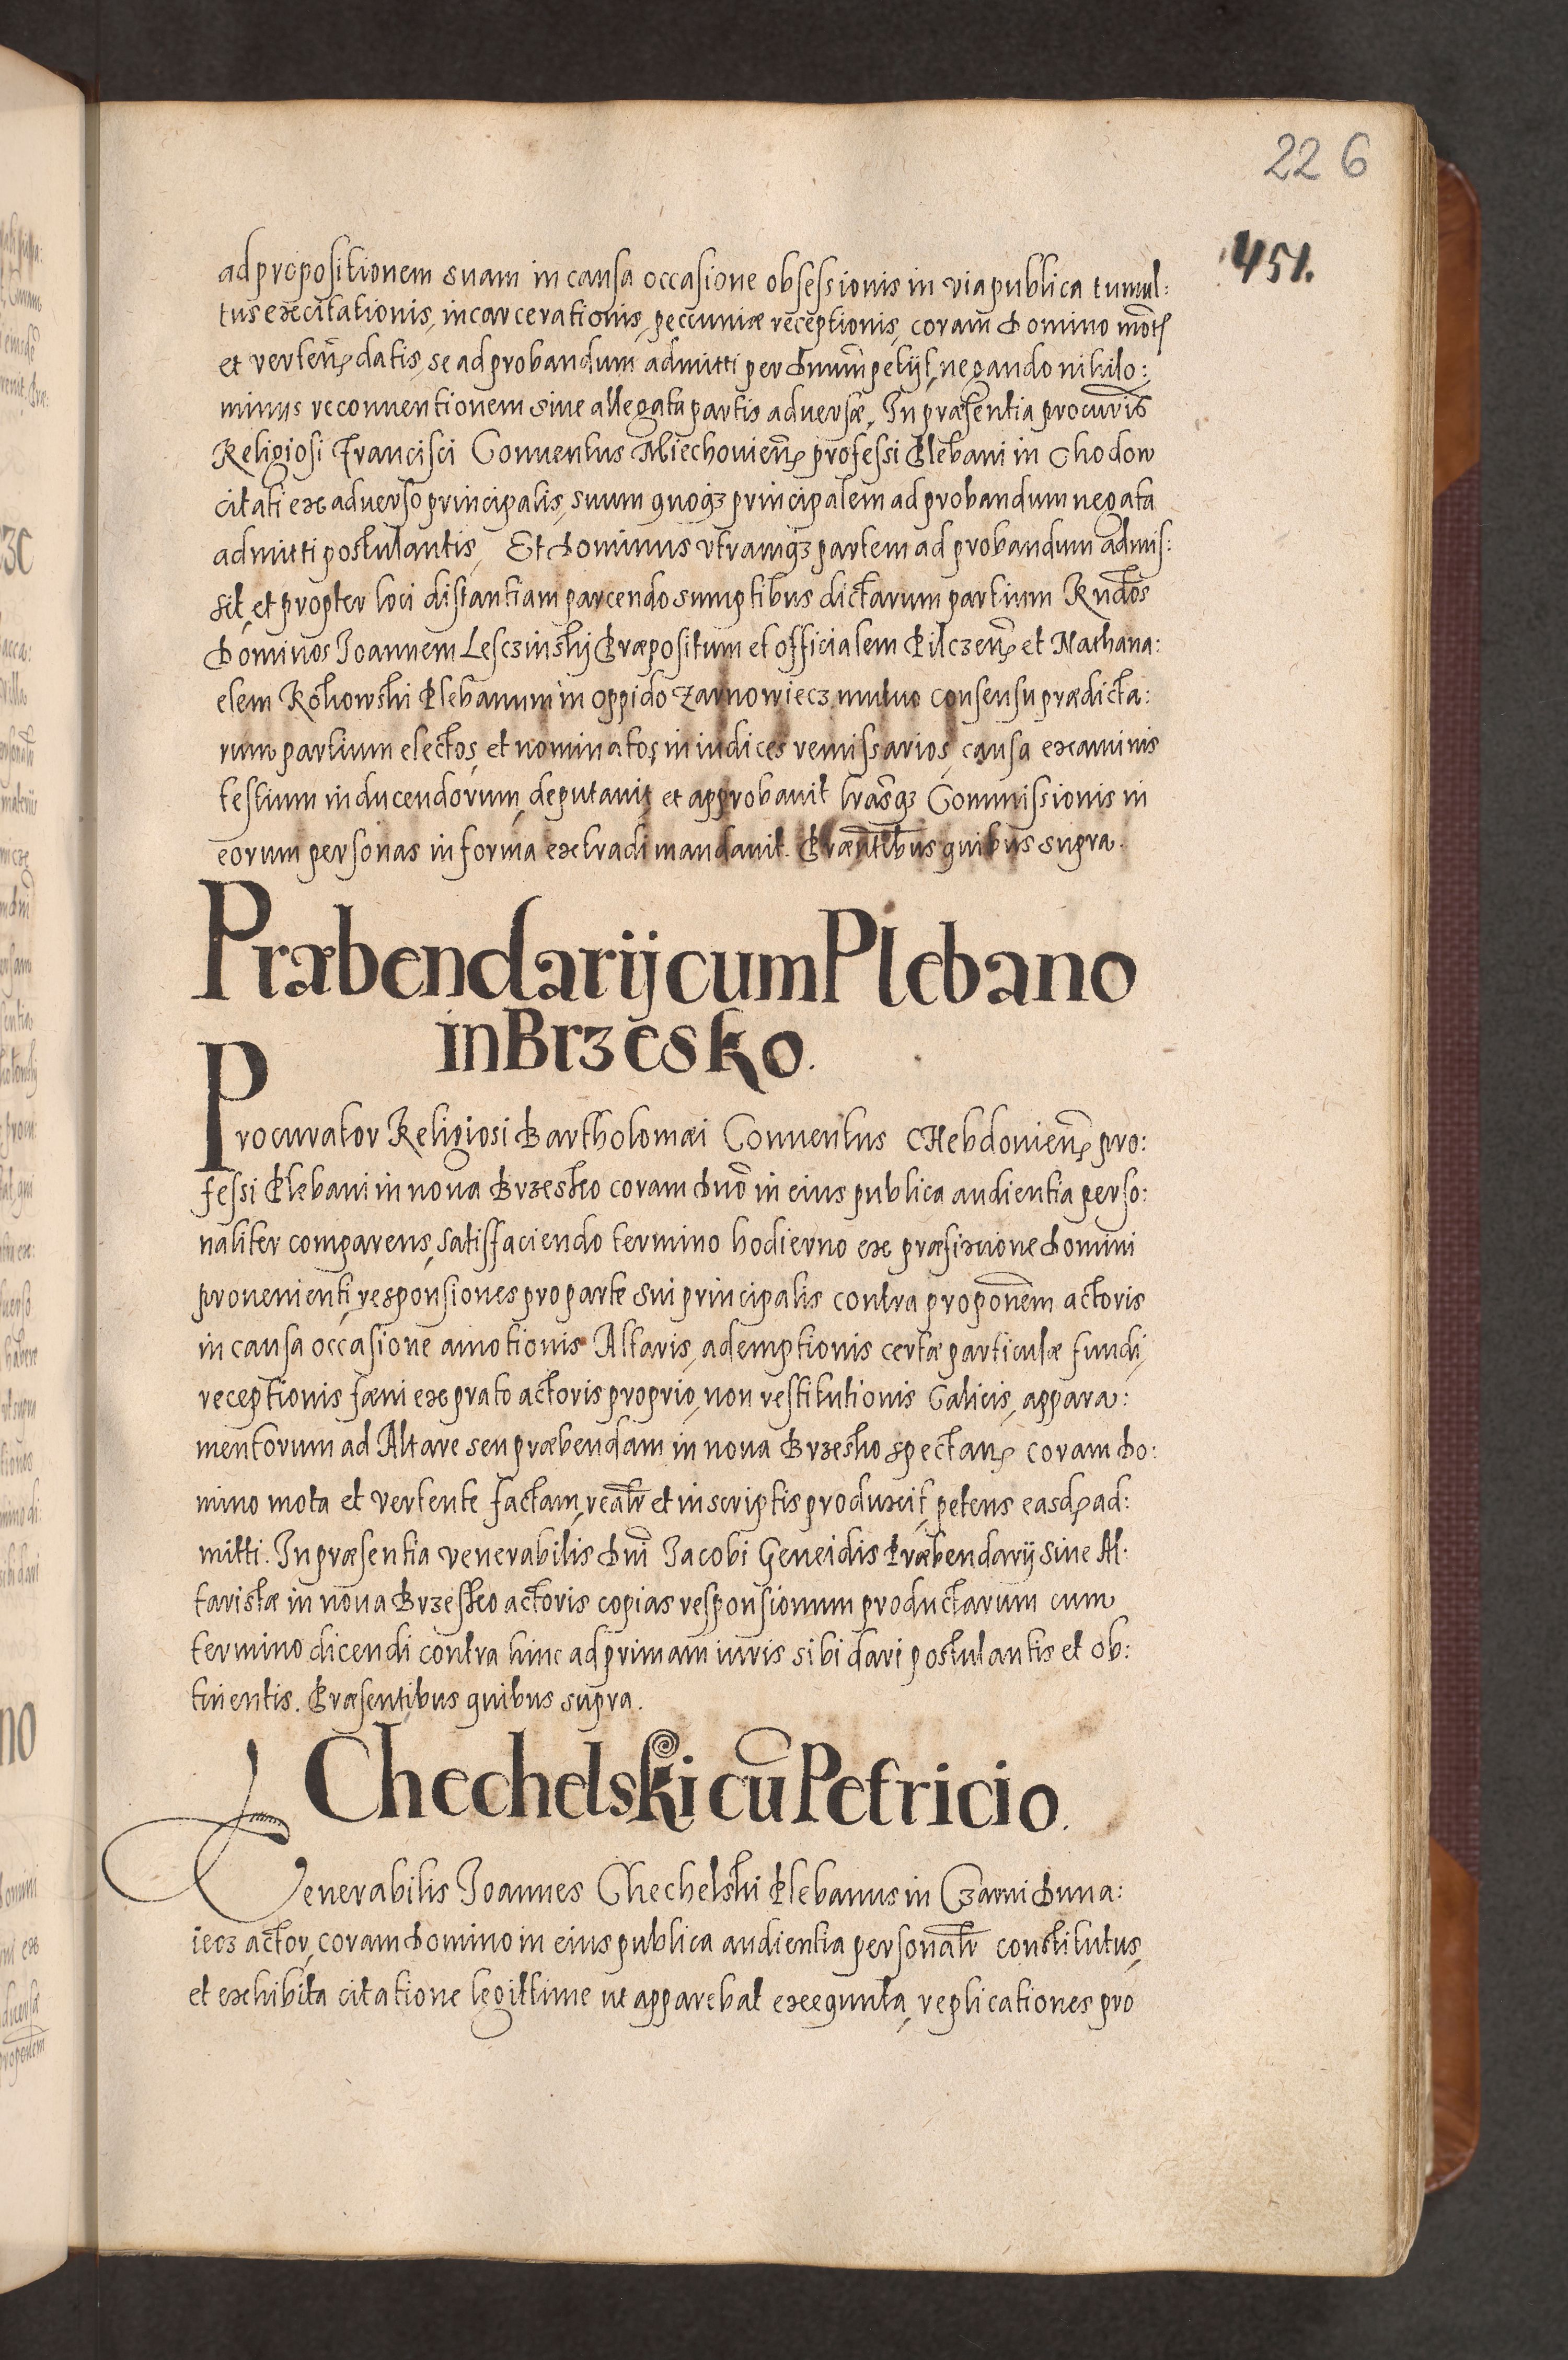 22 6
451.
ad propositionem suam in causa occasione obsessionis in via publica tumul:
tus excitationis, incarcerationis, peccuniæ receptionis, coram Domino mot
et verten datis, se ad probandum admitti per Dnum petijt, negando nihilo:
minus reconuentionem siue allegata partis aduersæ, In præsentia procuris
Religiosi Francisci Conuentus Miechouien professi Plebani in Chodow
citati ex aduerso principalis, suum quoqz principalem ad probandum negata
admitti postulantis, Et Dominus vtramqz partem ad probandum admis:
sit, et propter loci distantiam parcendo sumptibus dictarum partium Rndos
Dominos Joannem Lesczinski Præpositum et officialem Pilczen et Nathana:
elem Rokowski Plebanum in oppido Zarnowiecz mutuo consensu prædicta:
rum partium electos, et nominatos, in iudices remissarios, causa examinis
testium inducendorum, deputauit, et approbauit lrasqz Commissionis in
eorum personas in forma extradi mandauit. Præntibus quibus supra.
Præbendarij cum Plebano
in Brzesko.
Procurator Religiosi Bartholomæi Conuentus Hebdouien pro:
fessi Plebani in noua Brzesko coram Dno in eius publica audientia perso:
naliter comparens, satisfaciendo termino hodierno ex præfixione Domini
prouenienti, responsiones pro parte sui principalis contra proponem actoris
in causa occasione amotionis Altaris, ademptionis certæ particulæ fundi,
receptionis fæni ex prato actoris proprio, non restitutionis Calicis, appara:
mentorum ad Altare seu præbendam in noua Brzesko spectan coram Do:
mino mota et vertente factam, realr et in scriptis produxit, petens easd ad:
mitti. In præsentia venerabilis Dni Jacobi Geneidis Præbendarij siue Al:
taristæ in noua Brzesko actoris copias responsionum productarum cum
termino dicendi contra hinc ad primam iuris sibi dari postulantis et ob:
tinentis. Præsentibus quibus supra.
Chechelski cu Petricio.
Venerabilis Joannes Chechelski Plebanus in Czarni Duna:
iecz actor, coram Domino in eius publica audientia personalr constitutus,
et exhibita citatione legittime ut apparebat exequuta, replicationes pro